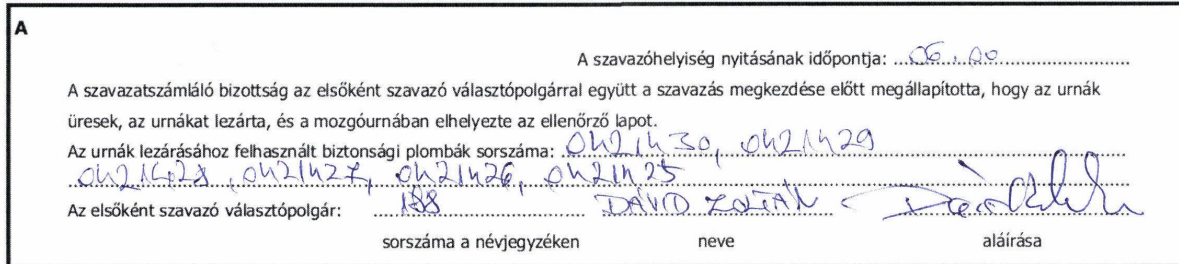 A
A szavazóhelyiség nyitásának időpontja: 06.00
A szavazatszámláló bizottság az elsőként szavazó választópolgárral együtt a szavazás megkezdése előtt megállapította, hogy az urnák
üresek, az urnákat lezárta, és a mozgóurnában elhelyezte az ellenőrző lapot.
Az urnák lezárásához felhasznált biztonsági plombák sorszáma: 0421430, 0421429
0421428, 0421427, 0421426, 0421425
Az elsőként szavazó választópolgár: 188 DÁVID ZOLTÁN
sorszáma a névjegyzéken neve aláírása